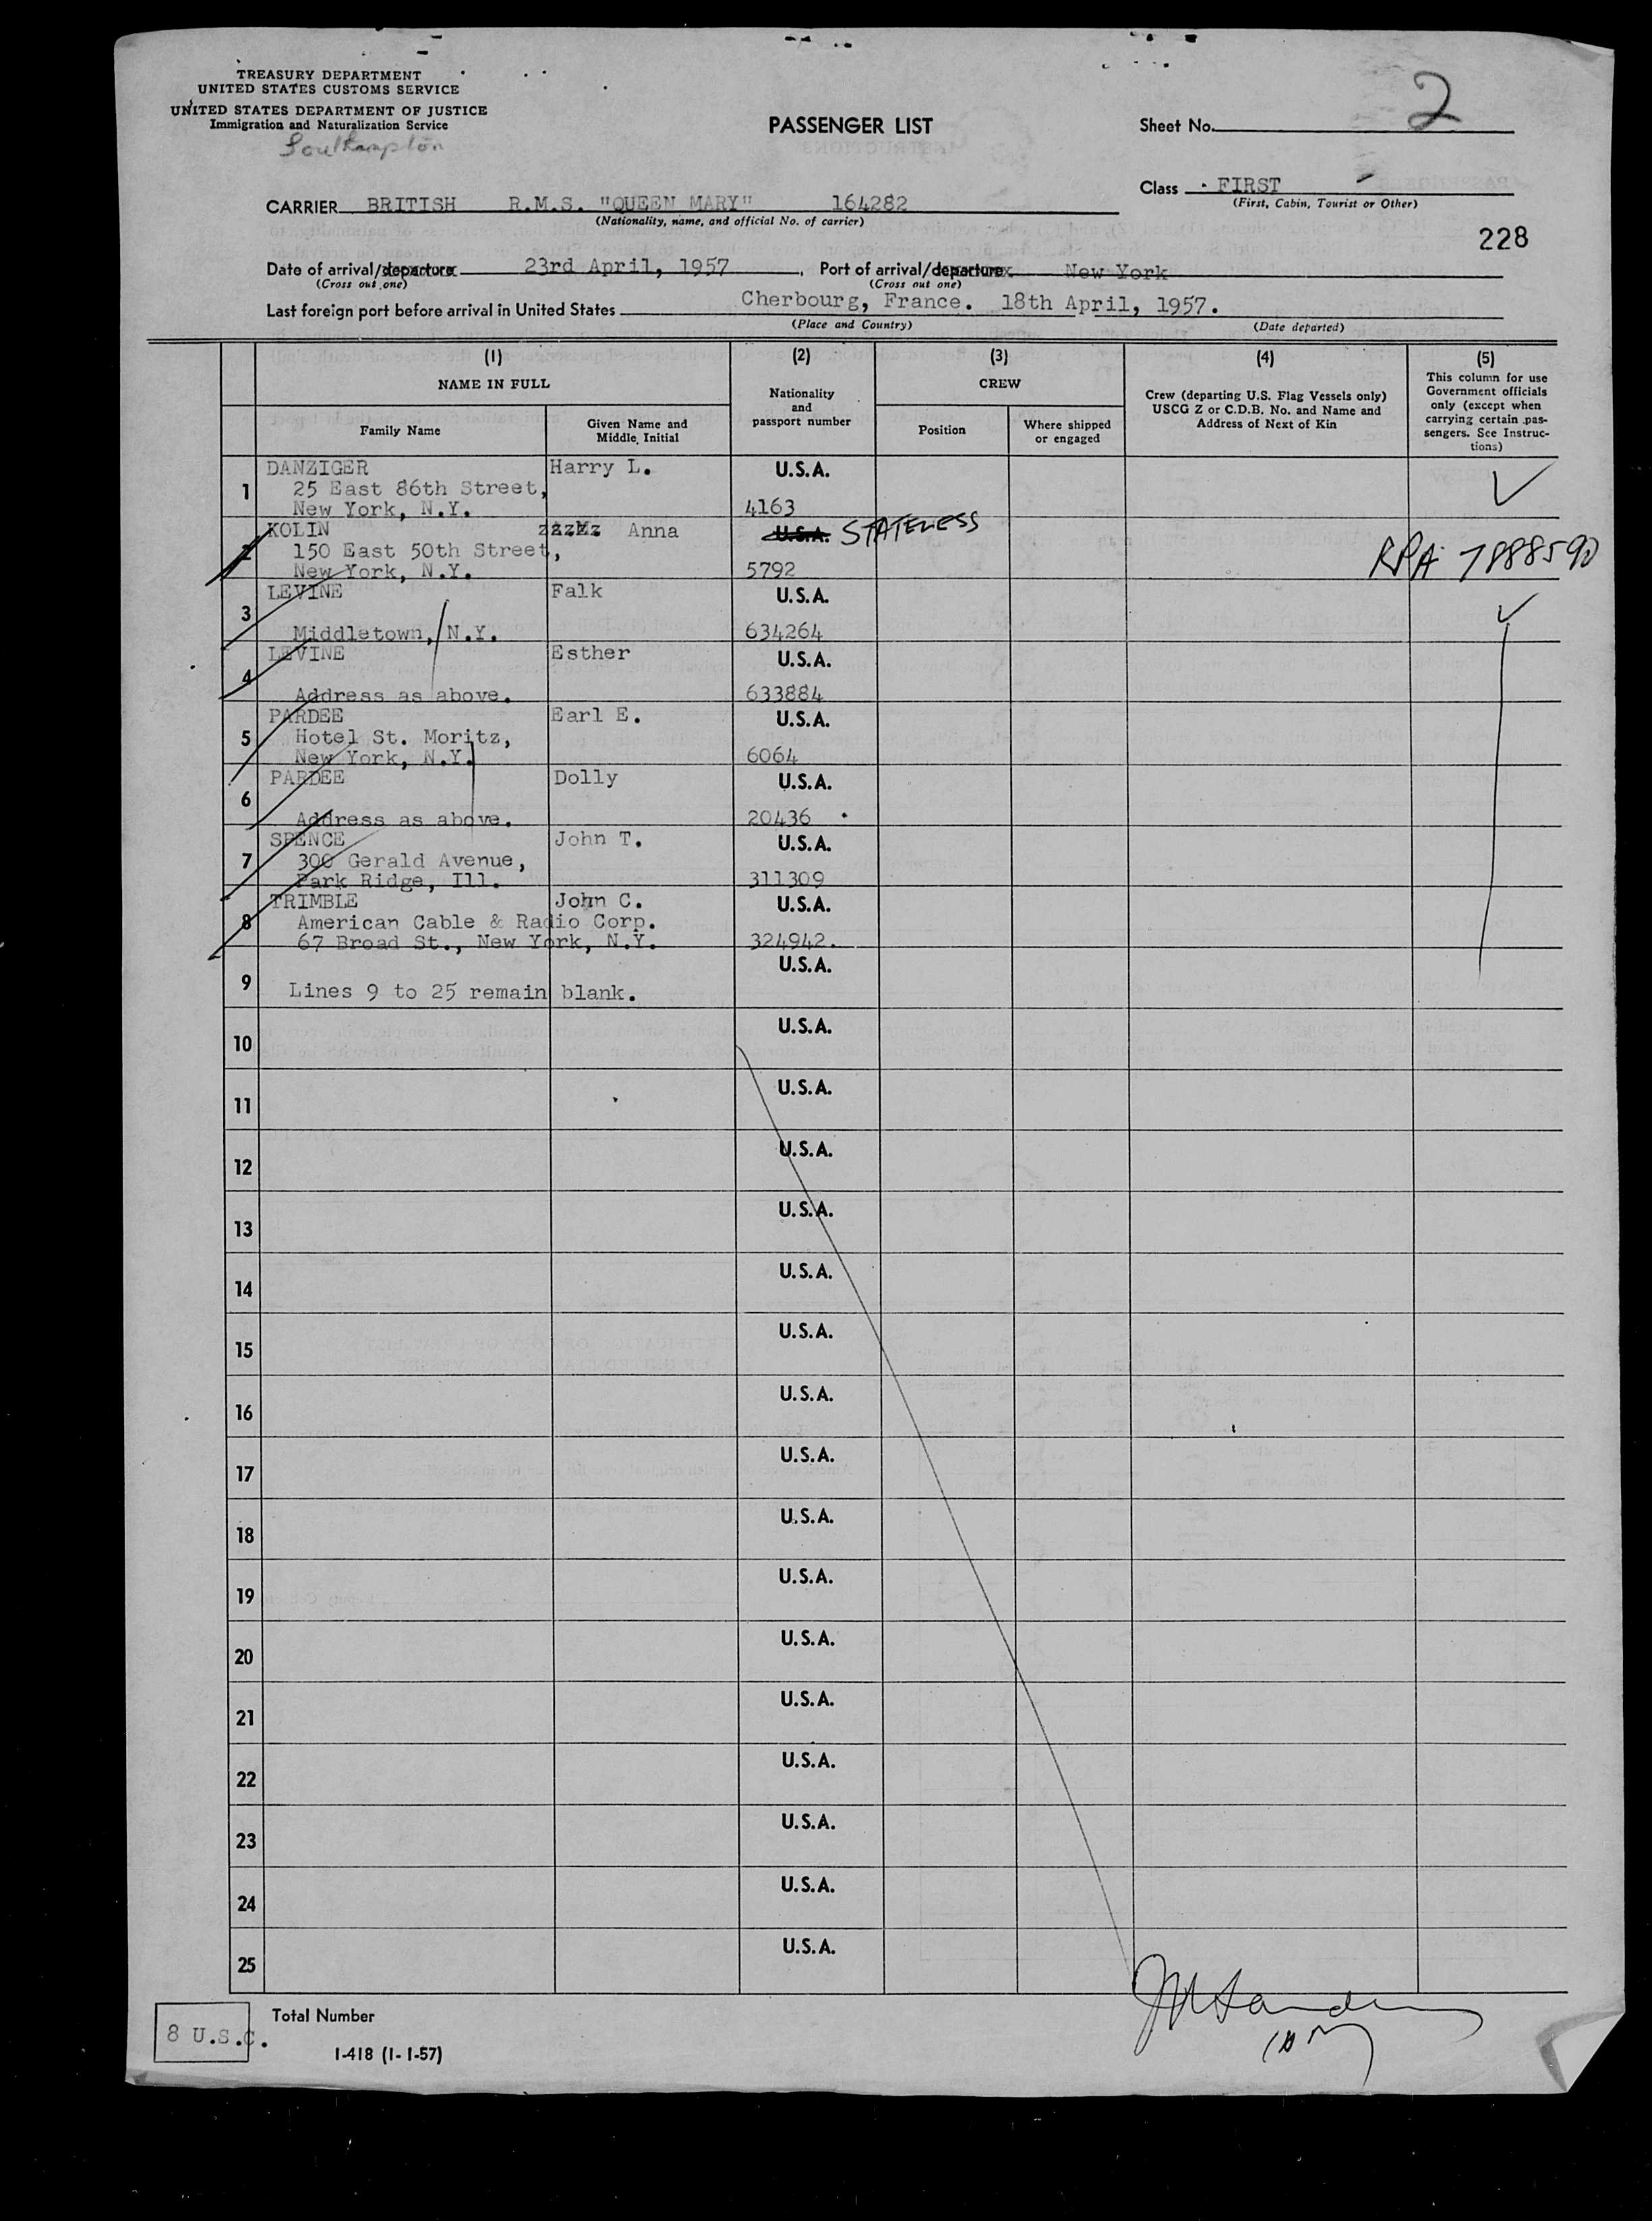 TREASURY DEPARTMENT
UNITED STATES CUSTOMS SERVICE
UNITED STATES DEPARTMENT OF JUSTICE
Immigration and Naturalization Service
Southampton
PASSENGER LIST
Sheet No. 2
Class FIRST
(First, Cabin, Tourist or Other)
CARRIER BRITISH R.M.S. "QUEEN MARY" 164282
(Nationality, name, and official No. of carrier)
228
Date of arrival/departure 23rd April, 1957. Port of arrival/departure New York
(Cross out one) (Cross out one)
Last foreign port before arrival in United States Cherbourg, France. 18th April, 1957.
(Place and Country) (Date departed)
(1) (2) (3) (4) (5)
NAME IN FULL
Family Name
Given Name and Middle Initial
Nationality and passport number
CREW
Position
Where shipped or engaged
Crew (departing U.S. Flag Vessels only) USCG Z or C.D.B. No. and Name and Address of Next of Kin
This column for use Government officials only (except when carrying certain passengers. See Instructions)
1 DANZIGER Harry L. U.S.A.
25 East 86th Street,
New York, N.Y. 4163
2 KOLIN Anna U.S.A. STATELESS
150 East 50th Street,
New York, N.Y. 5792 RPA 7888590
3 LEVINE Falk U.S.A.
Middletown, N.Y. 634264
4 LEVINE Esther U.S.A.
Address as above. 633884
5 PARDEE Earl E. U.S.A.
Hotel St. Moritz,
New York, N.Y. 6064
6 PARDEE Dolly U.S.A.
Address as above. 20436
7 SPENCE John T. U.S.A.
300 Gerald Avenue,
Park Ridge, Ill. 311309
8 TRIMBLE John C. U.S.A.
American Cable & Radio Corp.
67 Broad St., New York, N.Y. 324942.
9 U.S.A.
Lines 9 to 25 remain blank.
10 U.S.A.
11 U.S.A.
12 U.S.A.
13 U.S.A.
14 U.S.A.
15 U.S.A.
16 U.S.A.
17 U.S.A.
18 U.S.A.
19 U.S.A.
20 U.S.A.
21 U.S.A.
22 U.S.A.
23 U.S.A.
24 U.S.A.
25 U.S.A.
8 U.S.C.
Total Number
I-418 (1-1-57)